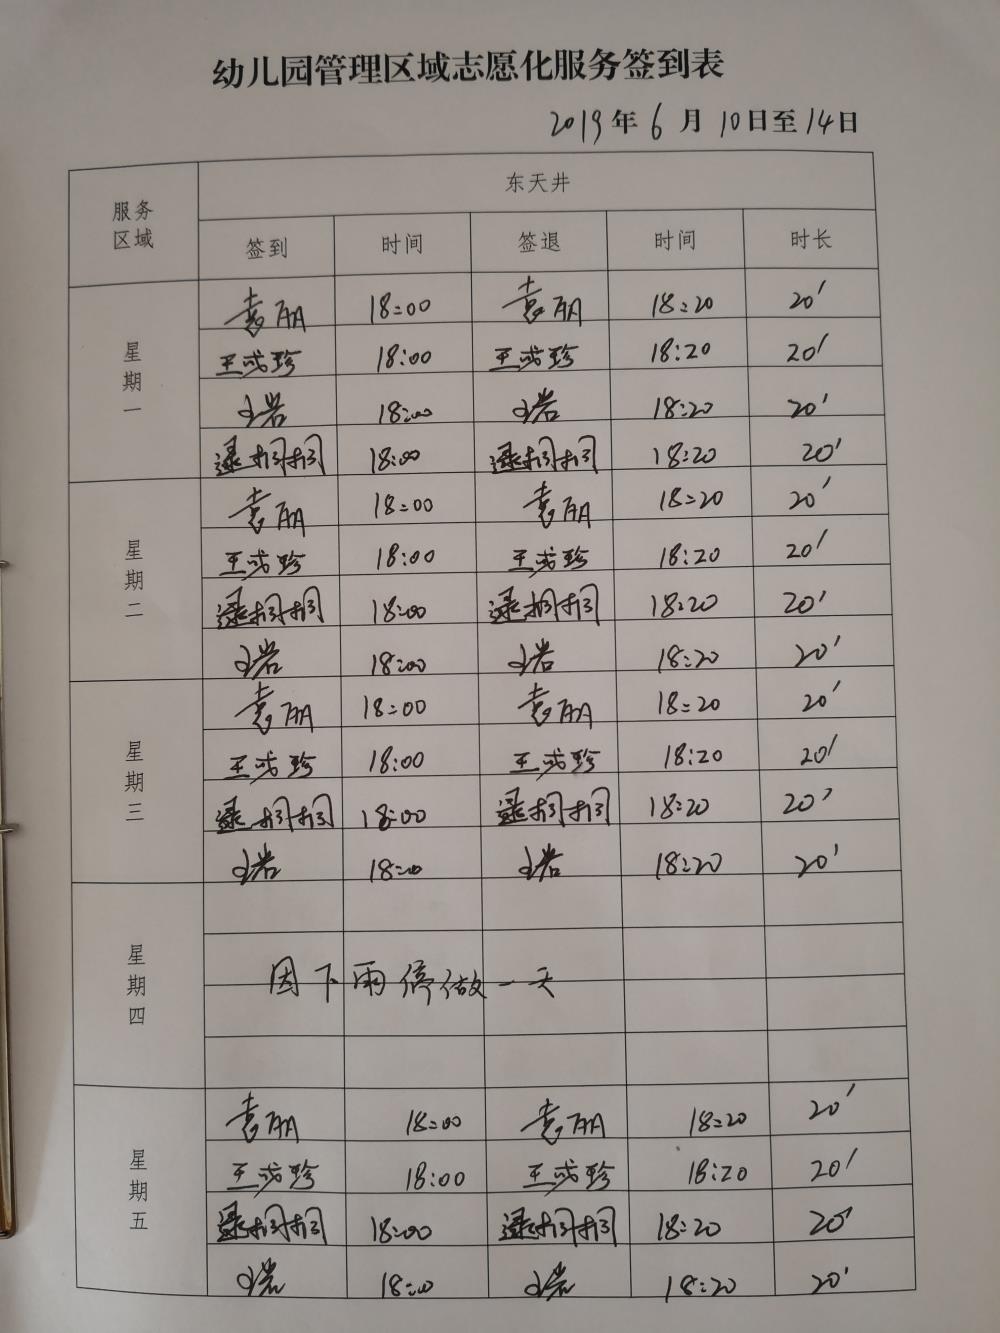 幼儿园管理区域志愿化服务签到表
2019年6月10日至14日
服务区域 东天井
签到 时间 签退 时间 时长
星期一
袁丽 18:00 袁丽 18:20 20'
王成珍 18:00 王成珍 18:20 20'
18:00 18:20 20'
逯桐桐 18:00 逯桐桐 18:20 20'
星期二
袁丽 18:00 袁丽 18:20 20'
王成珍 18:00 王成珍 18:20 20'
逯桐桐 18:00 逯桐桐 18:20 20'
18:00 18:20 20'
星期三
袁丽 18:00 袁丽 18:20 20'
王成珍 18:00 王成珍 18:20 20'
逯桐桐 18:00 逯桐桐 18:20 20'
18:00 18:20 20'
星期四
因下雨停做一天
星期五
袁丽 18:00 袁丽 18:20 20'
王成珍 18:00 王成珍 18:20 20'
逯桐桐 18:00 逯桐桐 18:20 20'
18:00 18:20 20'